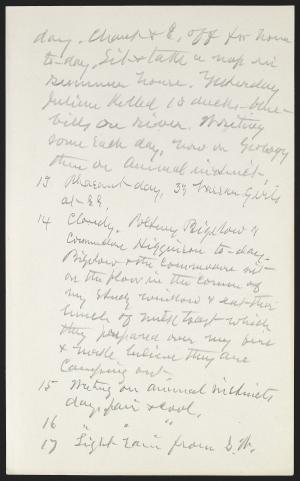 day. Champ & E. off for home
to-day. Sit & take a nap in
summer house. Yesterday
Julian killed 10 ducks - blue-
bills on river. Writing
some each day, now on Geology
then on animal instinct,
13 Pleasant day, 39 Vassar Girls
at S.S.
14 Cloudy. Poltney Bigelow &
Commodore Higginson to-day.
Bigelow & the Commodore sit
on the floor in the corner of
my study window & eat their
lunch of milk toast which
they prepared over my fire
& make believe they are
Camping out.
15 Writing on animal instincts
day, fair & cool.
16 " " "
17 Light rain from S.W.